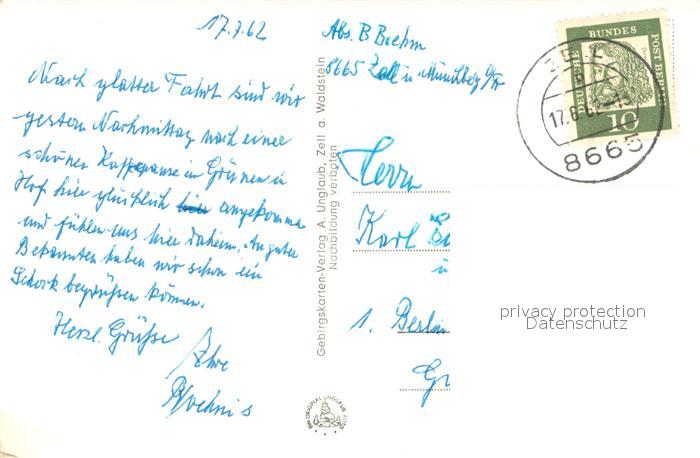 17.7.62
Abs. B Boehm
8665 Zell ü Münchberg
Nach glatter Fahrt sind wir
gestern Nachmittag nach einer
schönen Kaffepause im Grünen in
Hof hier glücklich angekommen
und fühlen uns hier daheim. An guten
Bekannten haben wir schon ein
Schock begrüßen können.
Herzl. Grüße
Ihre
Boehms
Gebirgskarten-Verlag A. Unglaub, Zell a. Waldstein
Nachbildung verboten
Herrn
Karl
u
1. Berlin
Gr
DEUTSCHE BUNDESPOST BERLIN
10
ZELL
17.8.62-15
8665
EIN ORIGINAL UNGLAUB FOTO
privacy protection
Datenschutz